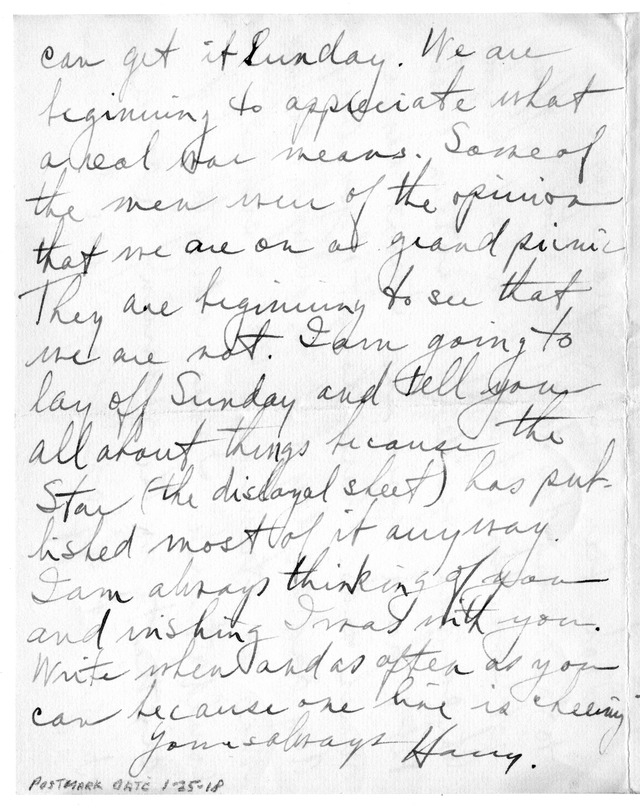 can get it Sunday. We are
beginning to appreciate what
a real war means. Some of
the men were of the opinion
that we are on a grand picnic
They are beginning to see that
we are not. I am going to
lay off Sunday and tell you
all about things because the
Star (the disloyal sheet) has pub-
lished most of it anyway.
I am always thinking of you
and wishing I was with you.
Write when and as often as you
can because one line is cheering
Yours always Harry.
POSTMARK DATE 1-25-18